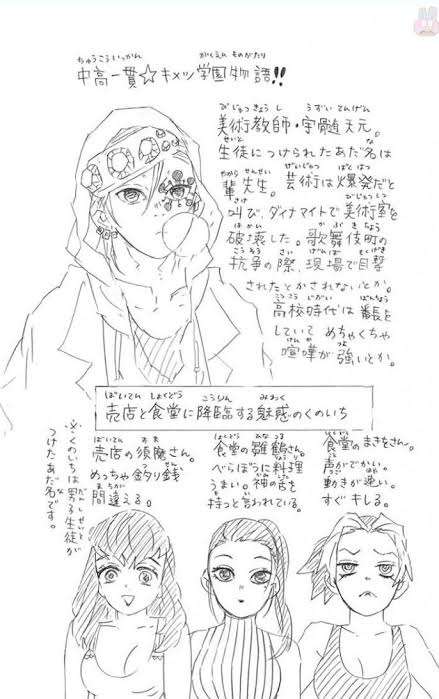 中高一貫☆キメツ学園物語!!
美術教師・宇髄天元。
生徒につけられたあだ名は
輩先生。芸術は爆発だと
叫び、ダイナマイトで美術室を
破壊した。歌舞伎町の
抗争の際、現場で目撃
されたとかされないとか。
高校時代は番長を
していてめちゃくちゃ
喧嘩が強いとか。
売店と食堂に降臨する魅惑のくのいち
食堂のまきをさん。
声がでかい。
動きが速い。
すぐキレる。
食堂の雛鶴さん。
べらぼうに料理
うまい。神の舌を
持つと言われている。
売店の須磨さん。
めっちゃ釣り銭
間違える。
※くのいちは男子生徒が
つけたあだ名です。